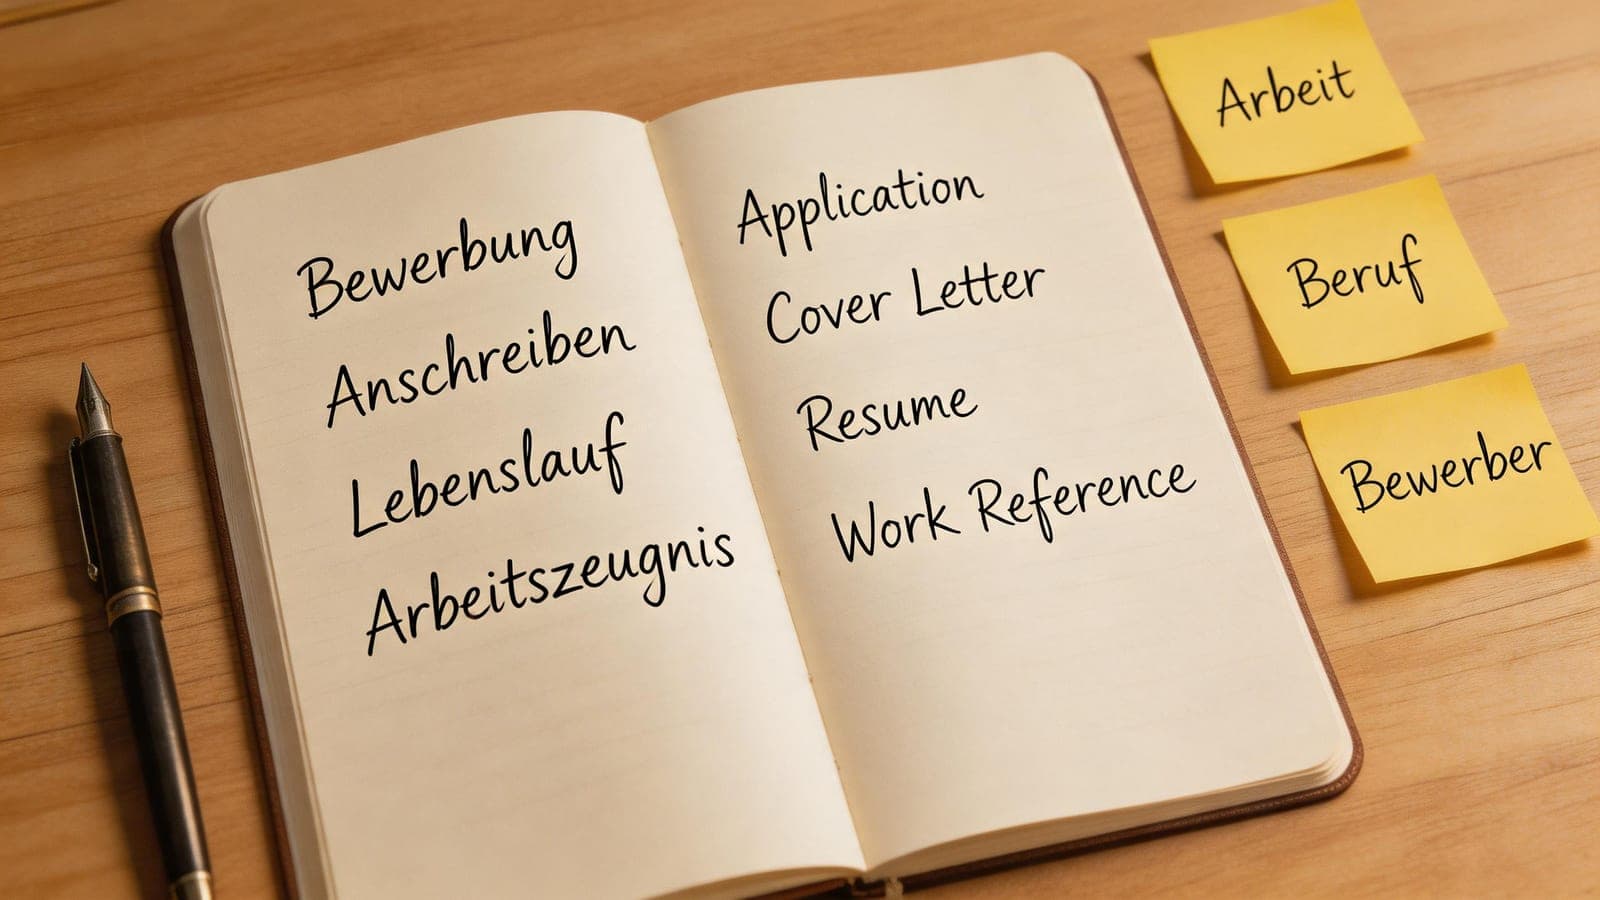 Bewerbung
Anschreiben
Lebenslauf
Arbeitszeugnis
Application
Cover Letter
Resume
Work Reference
Arbeit
Beruf
Bewerber